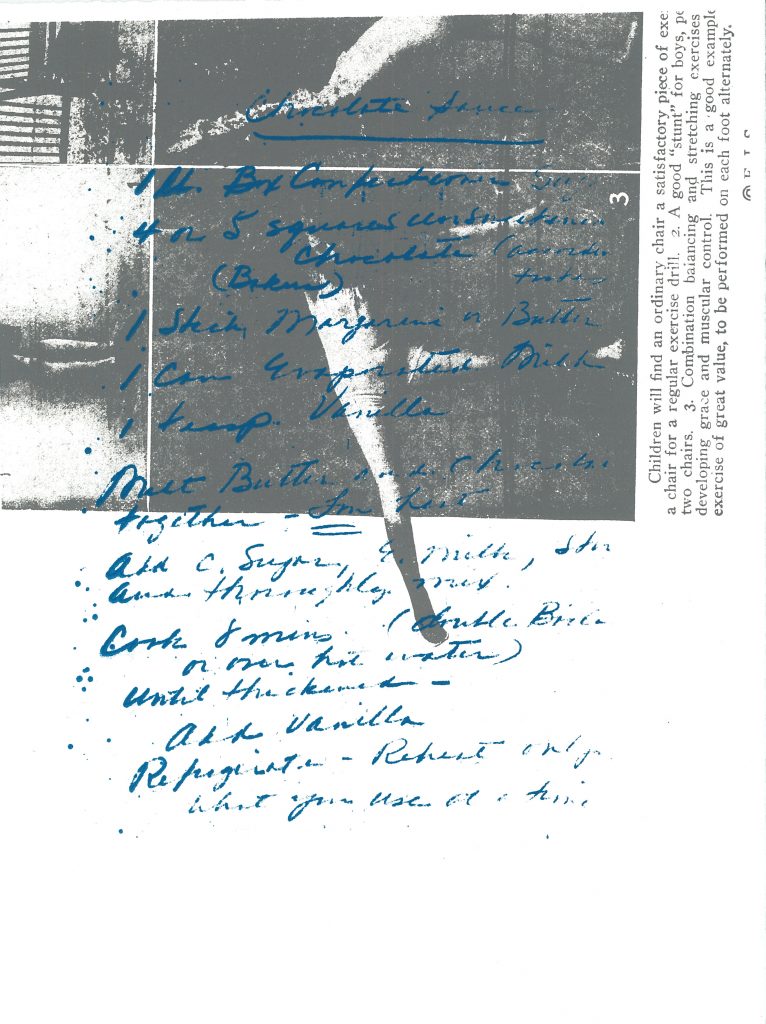 Chocolate Sauce
1 lb. Box Confectioners Sug
4 or 5 squares unsweetened
Chocolate (accordin
(Bakers) taste
1 Stick Margarine or Butter
1 Can Evaporated Milk
1 teasp. Vanilla
Melt Butter and Chocola
together - Low heat
Add C. Sugar, E. Milk, Stir
and thoroughly mix.
Cook 8 mins. (double Boile
or over hot water)
Until thickened -
Add Vanilla
Refrigerate - Reheat only
what you use at a time
3
Children will find an ordinary chair a satisfactory piece of exe
a chair for a regular exercise drill. 2. A good "stunt" for boys, pe
two chairs. 3. Combination balancing and stretching exercises
developing grace and muscular control. This is a good example
exercise of great value, to be performed on each foot alternately.